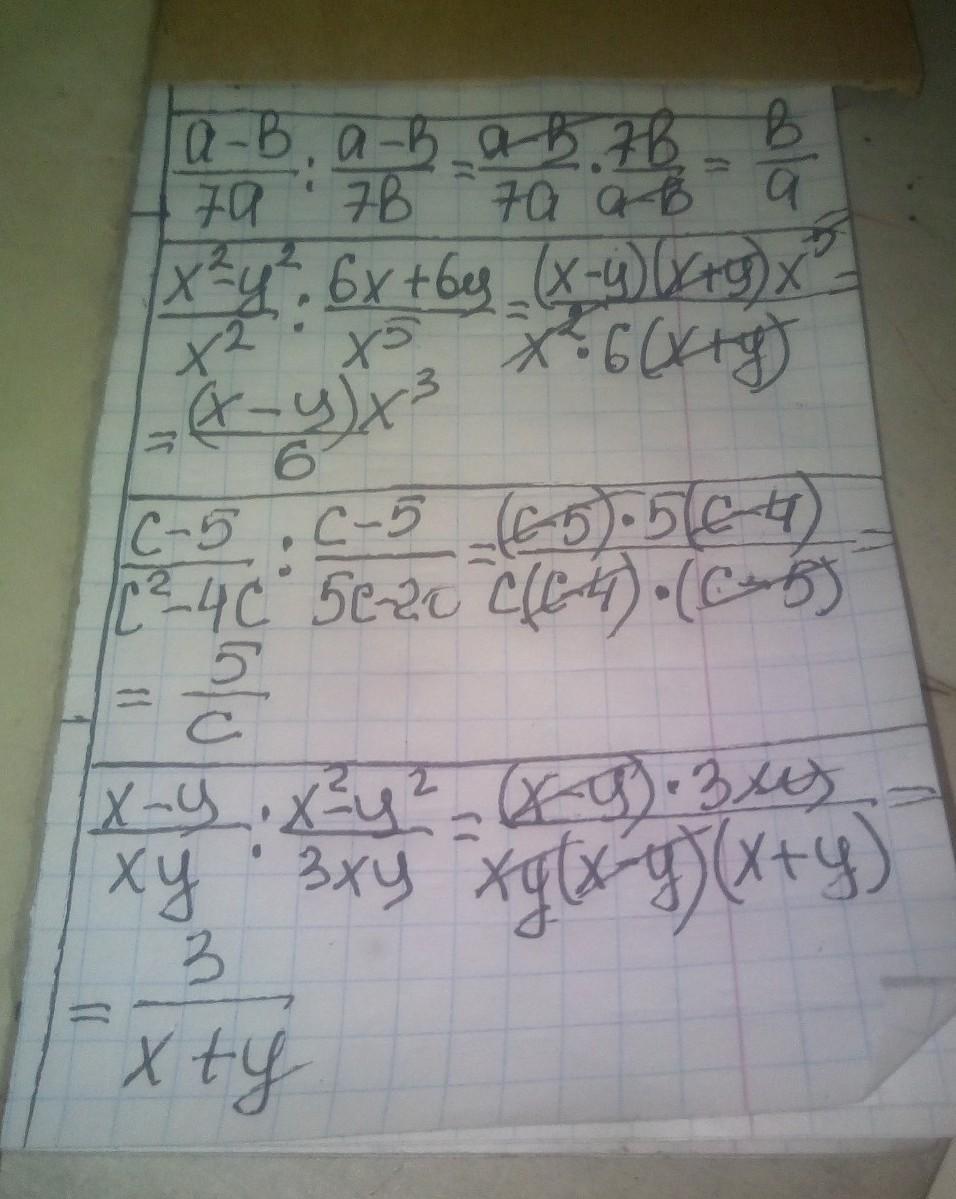 a-b/7a : a-b/7b = a-b/7a · 7b/a-b = b/a
x²-y²/x² : 6x+6y/x⁵ = (x-y)(x+y)x⁵/x²·6(x+y) =
= (x-y)x³/6
c-5/c²-4c : c-5/5c-20 = (c-5)·5(c-4)/c(c-4)·(c-5) =
= 5/c
x-y/xy : x²-y²/3xy = (x-y)·3xy/xy(x-y)(x+y) =
= 3/x+y